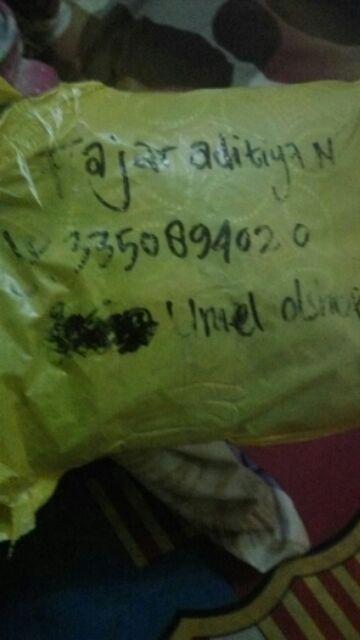 Fajar aditiya N
3350894020
Uniel